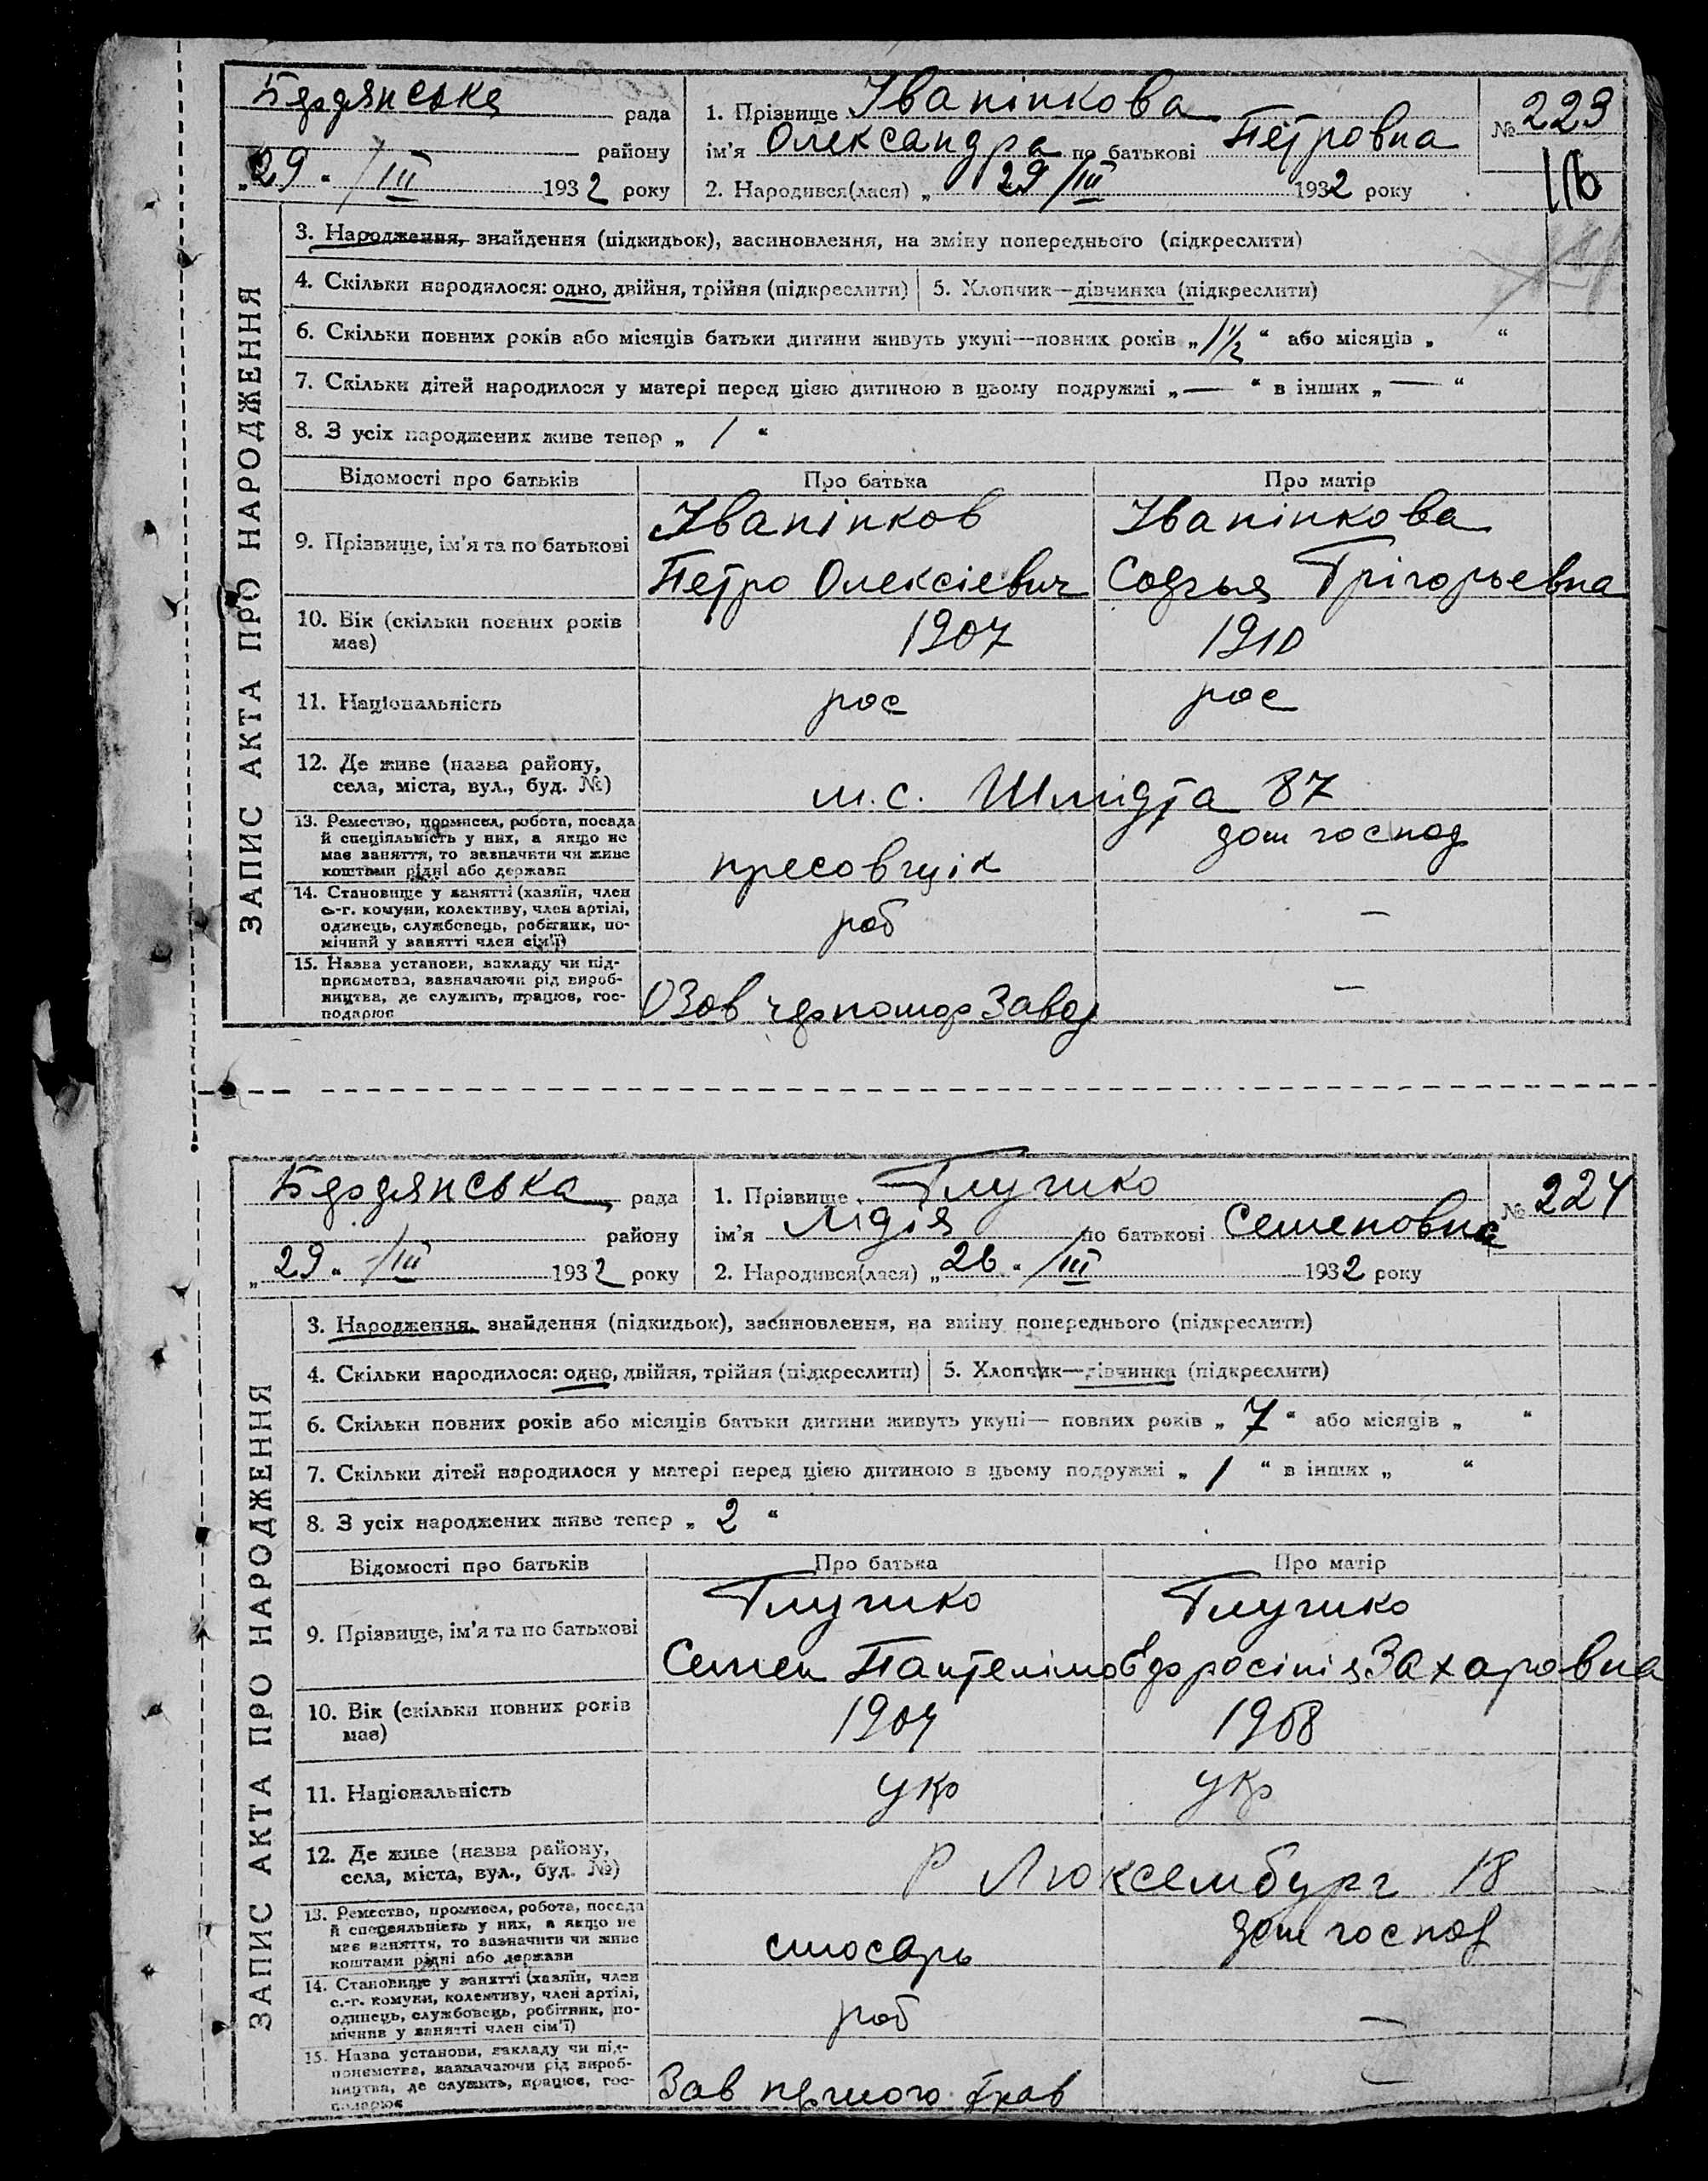 Бердянська рада
района
„29“ /III 1932 року
1. Прізвище Іванінкова
ім'я Олександра по батькові Петровна
2. Народився(лася) „ 29/III 1932 року
№ 223
116
ЗАПИС АКТА ПРО НАРОДЖЕННЯ
3. Народження, знайдення (підкидьок), засиновлення, на зміну попереднього (підкреслити)
4. Скільки народилося: одно, двійня, трійня (підкреслити) 5. Хлопчик—дівчинка (підкреслити)
6. Скільки повних років або місяців батьки дитини живуть укупі—повних років „1½“ або місяців „ “
7. Скільки дітей народилося у матері перед цією дитиною в цьому подружжі „—“ в інших „—“
8. З усіх народжених живе тепер „1“
Відомості про батьків Про батька Про матір
9. Прізвище, ім'я та по батькові
Іванінков Іванінкова
Петро Олексієвич Софья Грігорьевна
10. Вік (скільки повних років має) 1907 1910
11. Національність рос рос
12. Де живе (назва району,
села, міста, вул., буд. №)
м.с. Шмидта 87
13. Ремество, промисел, робота, посада
й спеціяльність у них, а якщо не
має заняття, то зазначити чи живе
коштами рідні або держави
пресовщік дом господ
14. Становище у занятті (хазяїн, член
с.-г. комуни, колективу, член артілі,
одинець, службовець, робітник, по-
мічний у занятті член сім'ї)
роб —
15. Назва установи, закладу чи під-
приємства, зазначаючи рід вироб-
ництва, де служить, працює, гос-
подарює
Озов чорномор Завод —
Бердянська рада
району
„29“ /III 1932 року
1. Прізвище Глушко
ім'я Лідія по батькові Семеновна
2. Народився(лася) „26“ /III 1932 року
№ 224
ЗАПИС АКТА ПРО НАРОДЖЕННЯ
3. Народження, знайдення (підкидьок), засиновлення, на зміну попереднього (підкреслити)
4. Скільки народилося: одно, двійня, трійня (підкреслити) 5. Хлопчик—дівчинка (підкреслити)
6. Скільки повних років або місяців батьки дитини живуть укупі— повних років „7“ або місяців „ “
7. Скільки дітей народилося у матері перед цією дитиною в цьому подружжі „1“ в інших „ “
8. З усіх народжених живе тепер „2“
Відомості про батьків Про батька Про матір
9. Прізвище, ім'я та по батькові
Глушко Глушко
Семен Пантелімов Єфросінія Захаровна
10. Вік (скільки повних років
має)
1904 1908
11. Національність укр укр
12. Де живе (назва району,
села, міста, вул., буд. №)
Р Люксембург 18
13. Ремество, промисел, робота, посада
й спеціяльність у них, а якщо не
має заняття, то зазначити чи живе
коштами рідні або держави
слюсарь дом господ
14. Становище у занятті (хазяїн, член
с.-г. комуни, колективу, член артілі,
одинець, службовець, робітник, по-
мічний у занятті член сім'ї)
роб —
15. Назва установи, закладу чи під-
приємства, зазначаючи рід вироб-
ництва, де служить, працює, гос-
подарює
Зав першого трав —